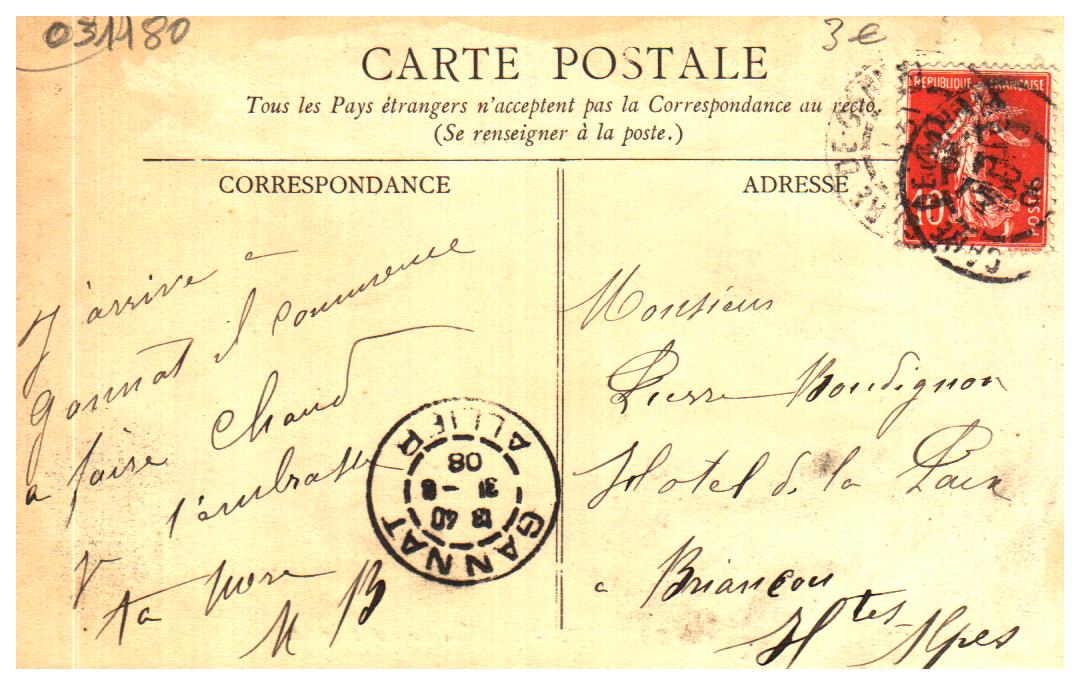 031180
3 €
CARTE POSTALE
Tous les Pays étrangers n'acceptent pas la Correspondance au recto.
(Se renseigner à la poste.)
CORRESPONDANCE
J'arrive a
Gannat il commence
a faire chaud
t'embrasse
Ta mere
M B
GANNAT
13 40
31 - 8
08
ALLIER
ADRESSE
RÉPUBLIQUE FRANÇAISE
10
POSTES
Monsieur
Pierre Boudignon
Hotel de la Paix
a Briançon
Htes Alpes